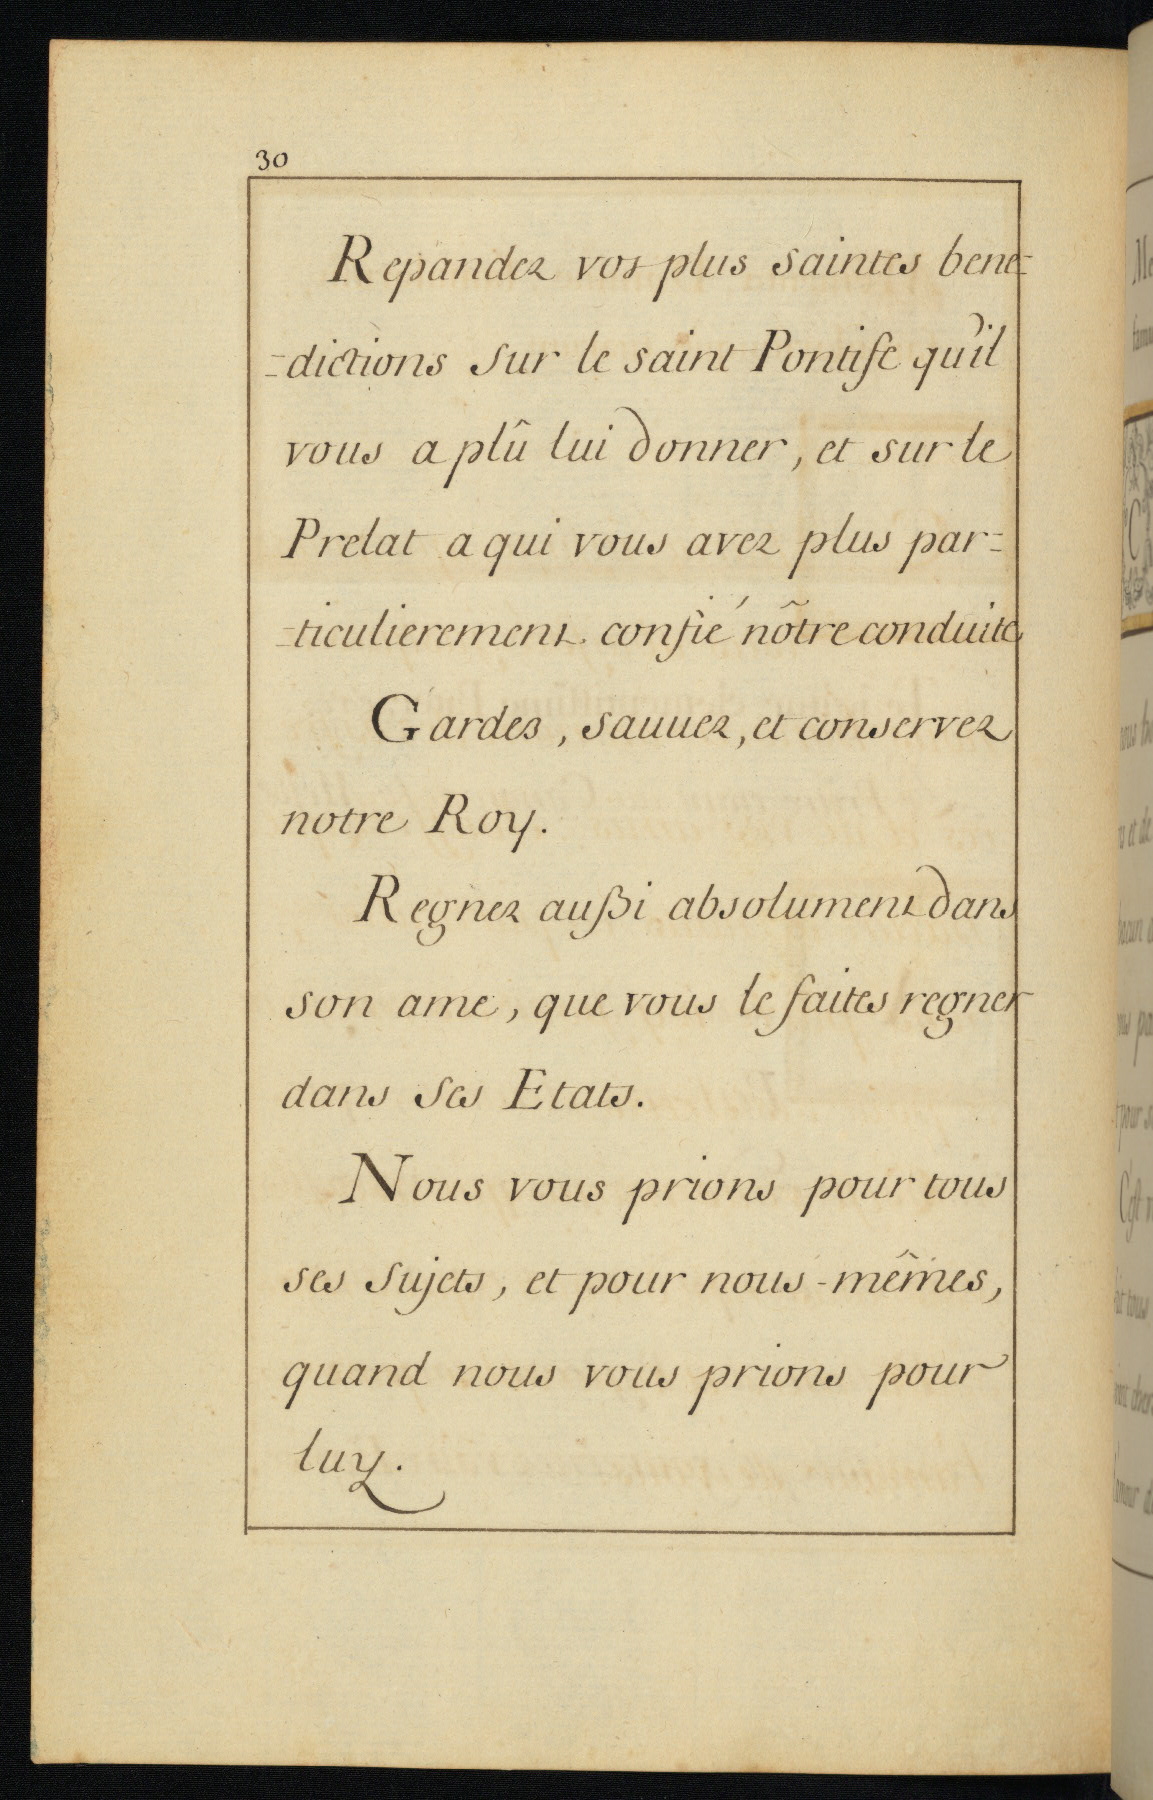 30
Repandez vos plus saintes bene=
=dictions sur le saint Pontife qu'il
vous a plû lui donner, et sur le
Prelat a qui vous avez plus par=
=ticulierement confié nôtre conduite
Gardes, sauuez, et conservez
notre Roy.
Regnez außi absolument dans
son ame, que vous le faites regner
dans ses Etats.
Nous vous prions pour tous
ses sujets, et pour nous-mêmes,
quand nous vous prions pour
luy.